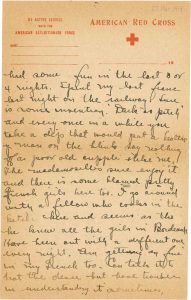 ON ACTIVE SERVICE
WITH THE
AMERICAN EXPEDITIONARY FORCE
AMERICAN RED CROSS
had some fun in the last 3 or
4 nights. I
last night on the railway. Sure
is some inventing. Dark as pitch
and every once in a while you
take a dip that would put a
man on the blink say nothing
of a poor old cripple like me.
The mademoiselles sure enjoy it
and there is some blamed pretty
french girls here too. I go around
with a fellow who cooks in the
hotel here and seems as tho
he knew all the girls in Bordeaux
Have been out with a different one
every night. Am getting fine
in my french too. Can talk it
but have trouble
in understanding it sometimes,